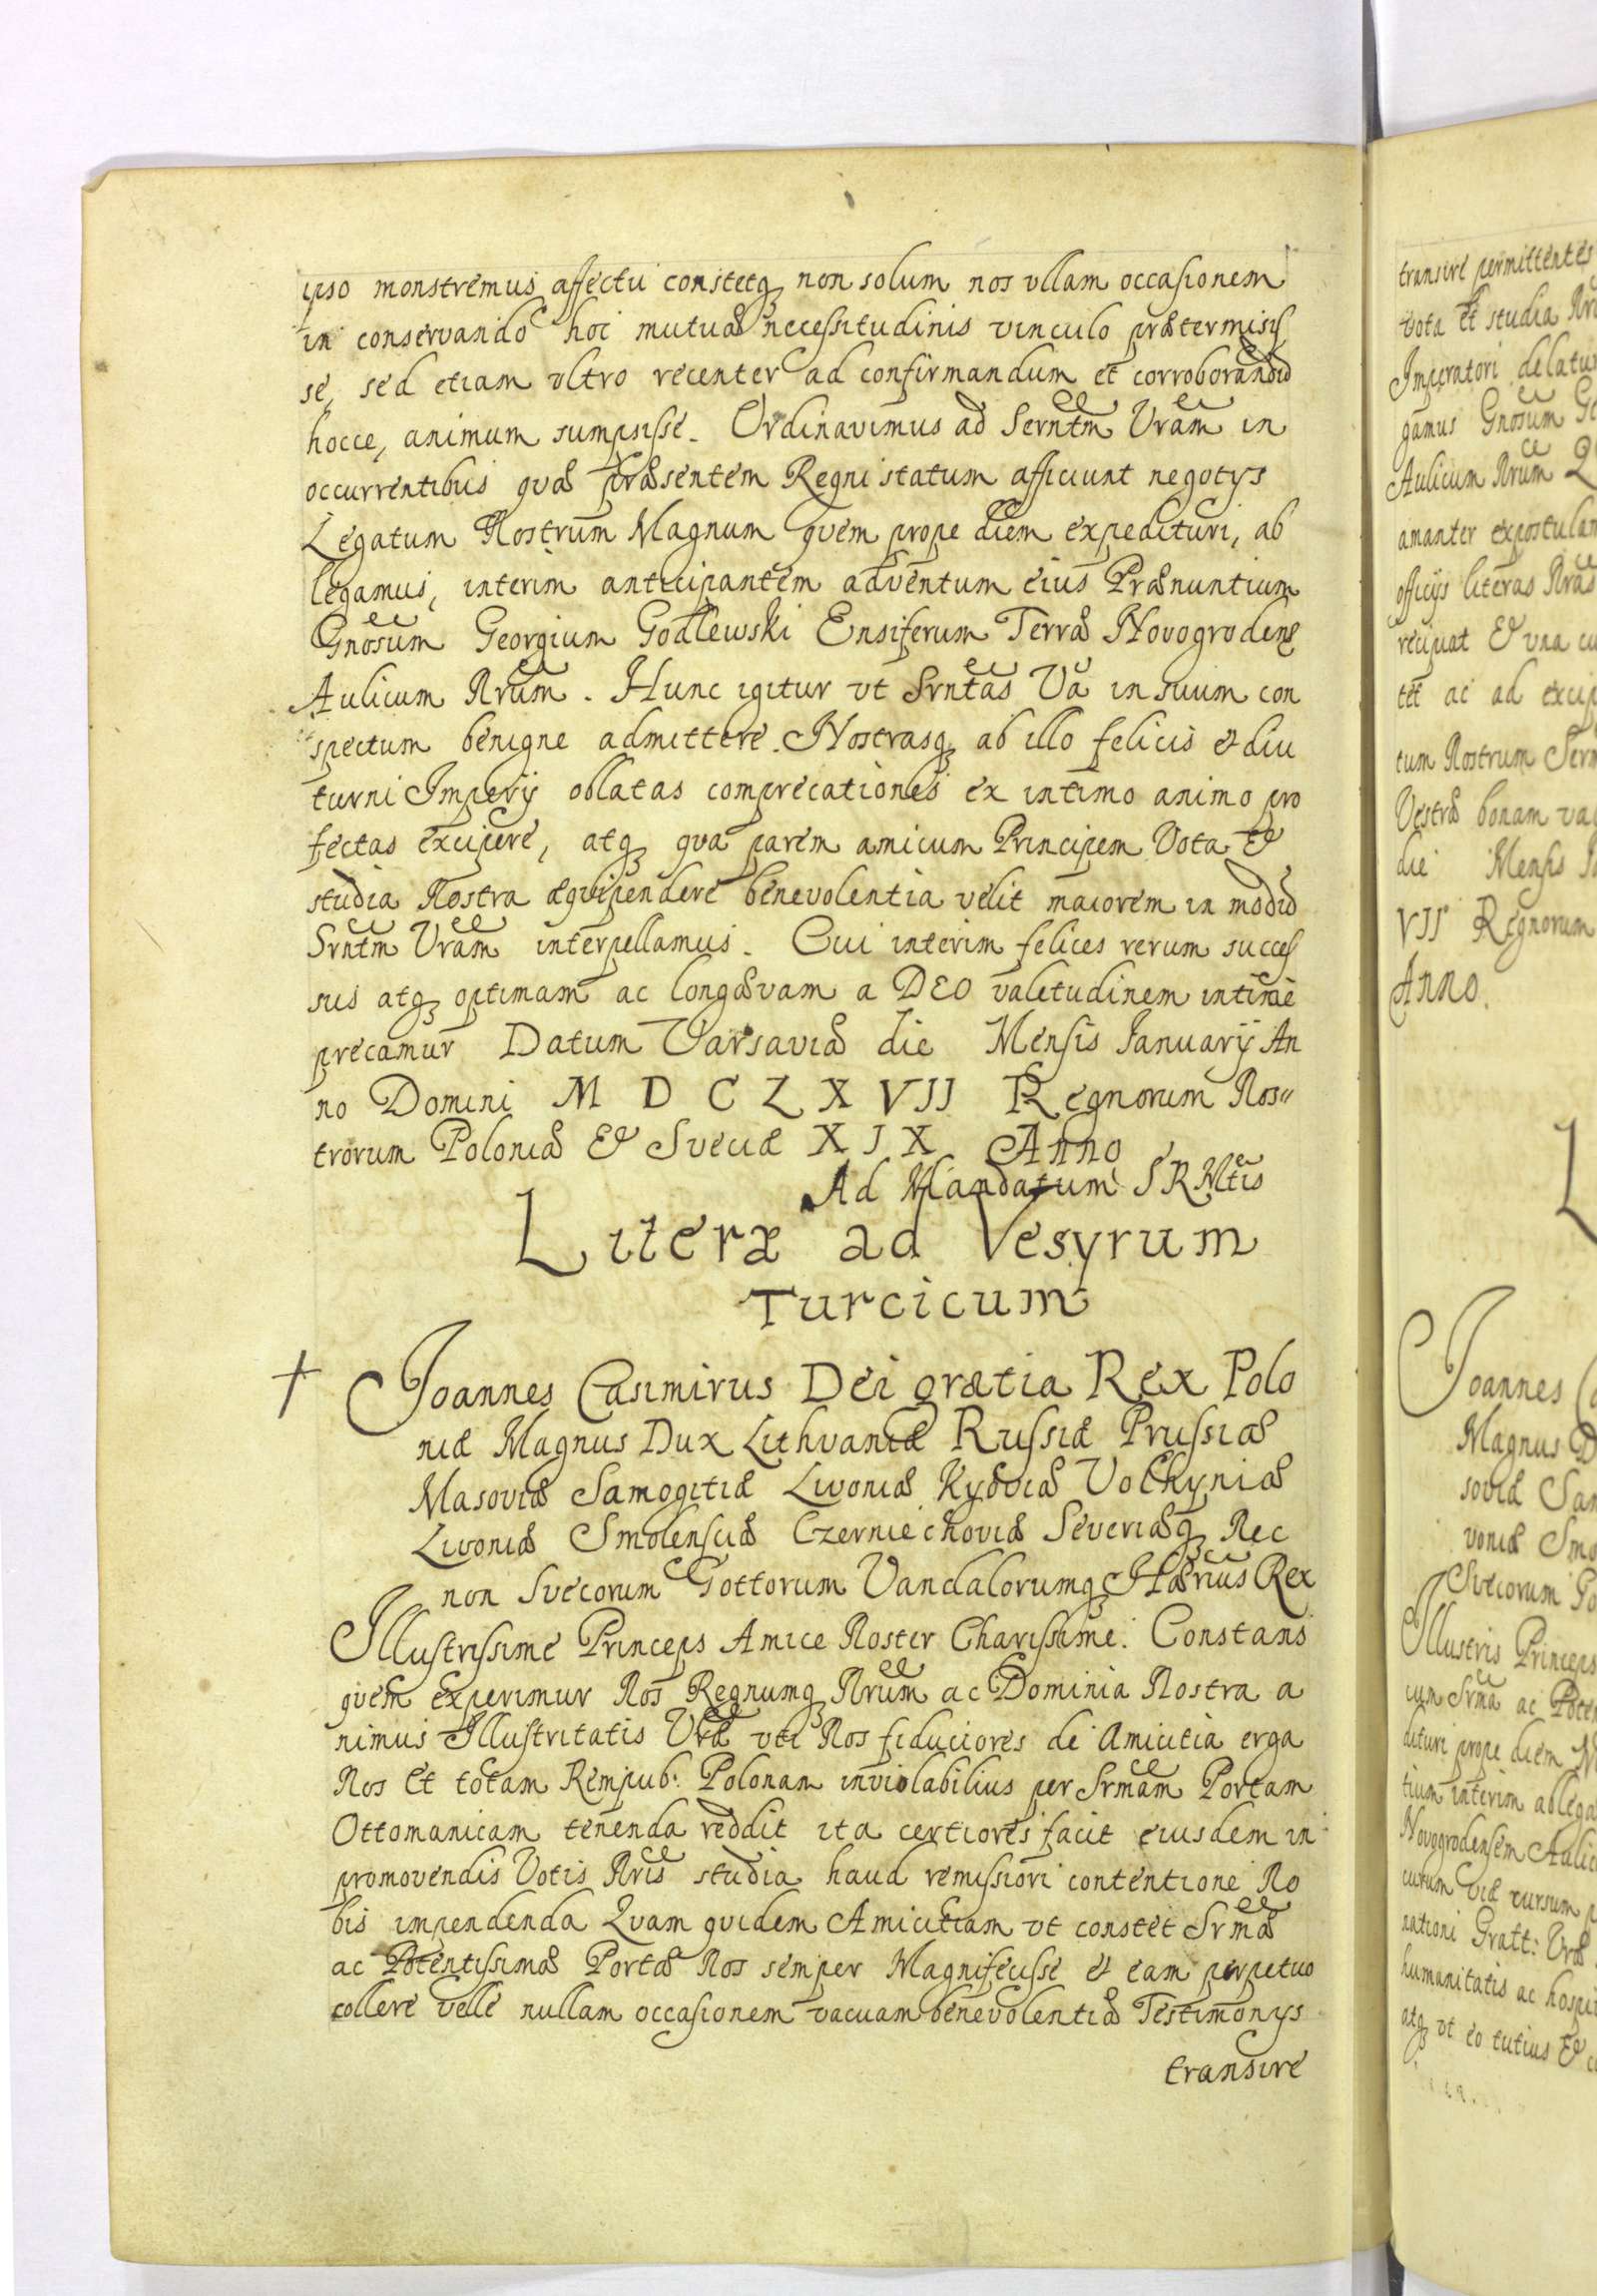 ipso monstremus affectu constetq non solum nos ullam occasionem
in conservando hoc mutuæ necessitudinis vinculo prætermisis
se, sed etiam ultro recenter ad confirmandum et corroborandū
hocce, animum sumpsisse. Ordinavimus ad Serntm Vram in
occurrentibus quæ præsentem Regni statum afficiunt negotys
Legatum Nostrum Magnum quem prope diem expedituri, ab
legamus, interim anticipantem adventum eius Prænuntium
Gnosum Georgium Godlewski Ensiferum Terræ Novogrodens
Aulicum Nrum. Hunc igitur ut Srntas Va in suum con
spectum benigne admittere. Nostrasq ab illo felicis et diu
turni Imperij oblatas comprecationes ex intimo animo pro
fectas excipere, atq qua parem amicum Principem Vota et
studia Nostra æquipendere benevolentia velit maiorem in modū
Srntm Vram interpellamus. Cui interim felices rerum succes
sus atq optimam ac longævam a DEO valetudinem intime
precamur Datum Varsaviæ die Mensis Januarij An
no Domini M D C L X VII Regnorum Nos
trorum Poloniæ Et Sveciæ X I X Anno
Ad Mandatum S R Mtis
Literæ ad Vesyrum
Turcicum
+ Joannes Casimirus Dei gratia Rex Polo
niæ Magnus Dux Lithvaniæ Russiæ Prussiæ
Masoviæ Samogitiæ Livoniæ Kyoviæ Volhyniæ
Livoniæ Smolensciæ Czerniechoviæ Severiæq Nec
non Svecorum Gottorum Vandalorumq Hærius Rex
Illustrissime Princeps Amice Noster Charissime. Constans
quem experimur Nos Regnumq Nrum ac Dominia Nostra a
nimus Illustritatis Vræ uti Nos fiduciores de Amicitia erga
Nos et totam Rempub: Polonam inviolabilius per Srmam Portam
Ottomanicam tenenda reddit ita certiores facit eiusdem in
promovendis Votis Nris studia haud remissiori contentione No
bis impendenda Quam quidem Amicitiam ut constet Srmæ
ac Potentissimæ Portæ Nos semper Magnifecisse et eam perpetuo
collere velle nullam occasionem vacuam benevolentiæ Testimonys
transire
transire permittentes
vota et studia
Imperatori
gamus Gnosum
Aulicum Nrum
amanter
officijs literas Nras
recipiat Et una
tet ac ad
tum Nostrum
Vestræ bonam
die Mensis
VII Regnorum
Anno.
L
Joannes
Magnus D
soviæ
voniæ
Svecorum
Illustris Princeps
cum Srma ac
dituri prope diem M
tium interim
Novogrodensem
curum viæ cursum
nationi Gratt: Vræ
humanitatis ac
atq ut eo tutius Et